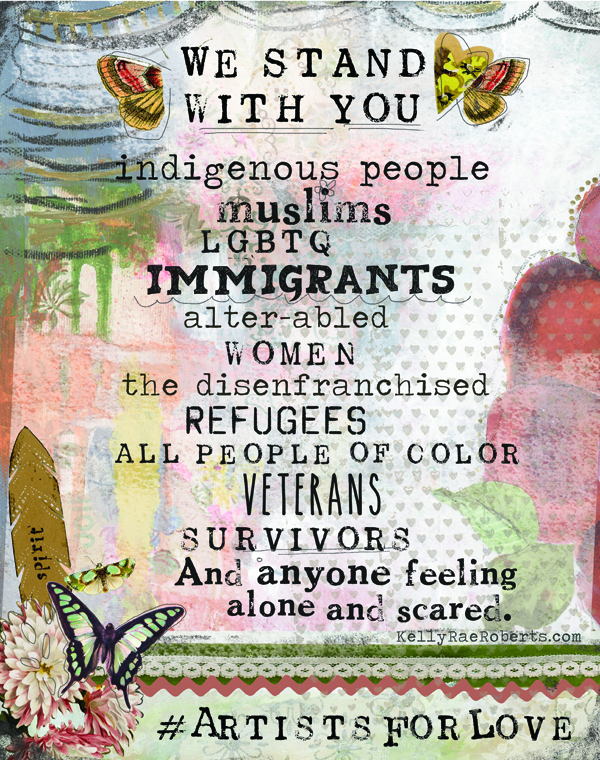 WE STAND
WITH YOU
indigenous people
muslims
LGBTQ
IMMIGRANTS
alter-abled
WOMEN
the disenfranchised
REFUGEES
ALL PEOPLE OF COLOR
VETERANS
SURVIVORS
And anyone feeling
alone and scared.
KellyRaeRoberts.com
spirit
#ARTISTS FOR LOVE